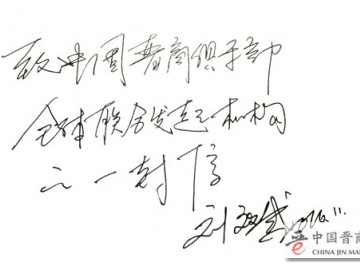 致中国晋商俱乐部
全体联合发起机构
之一封信
刘
中国晋商
CHINA JIN MA